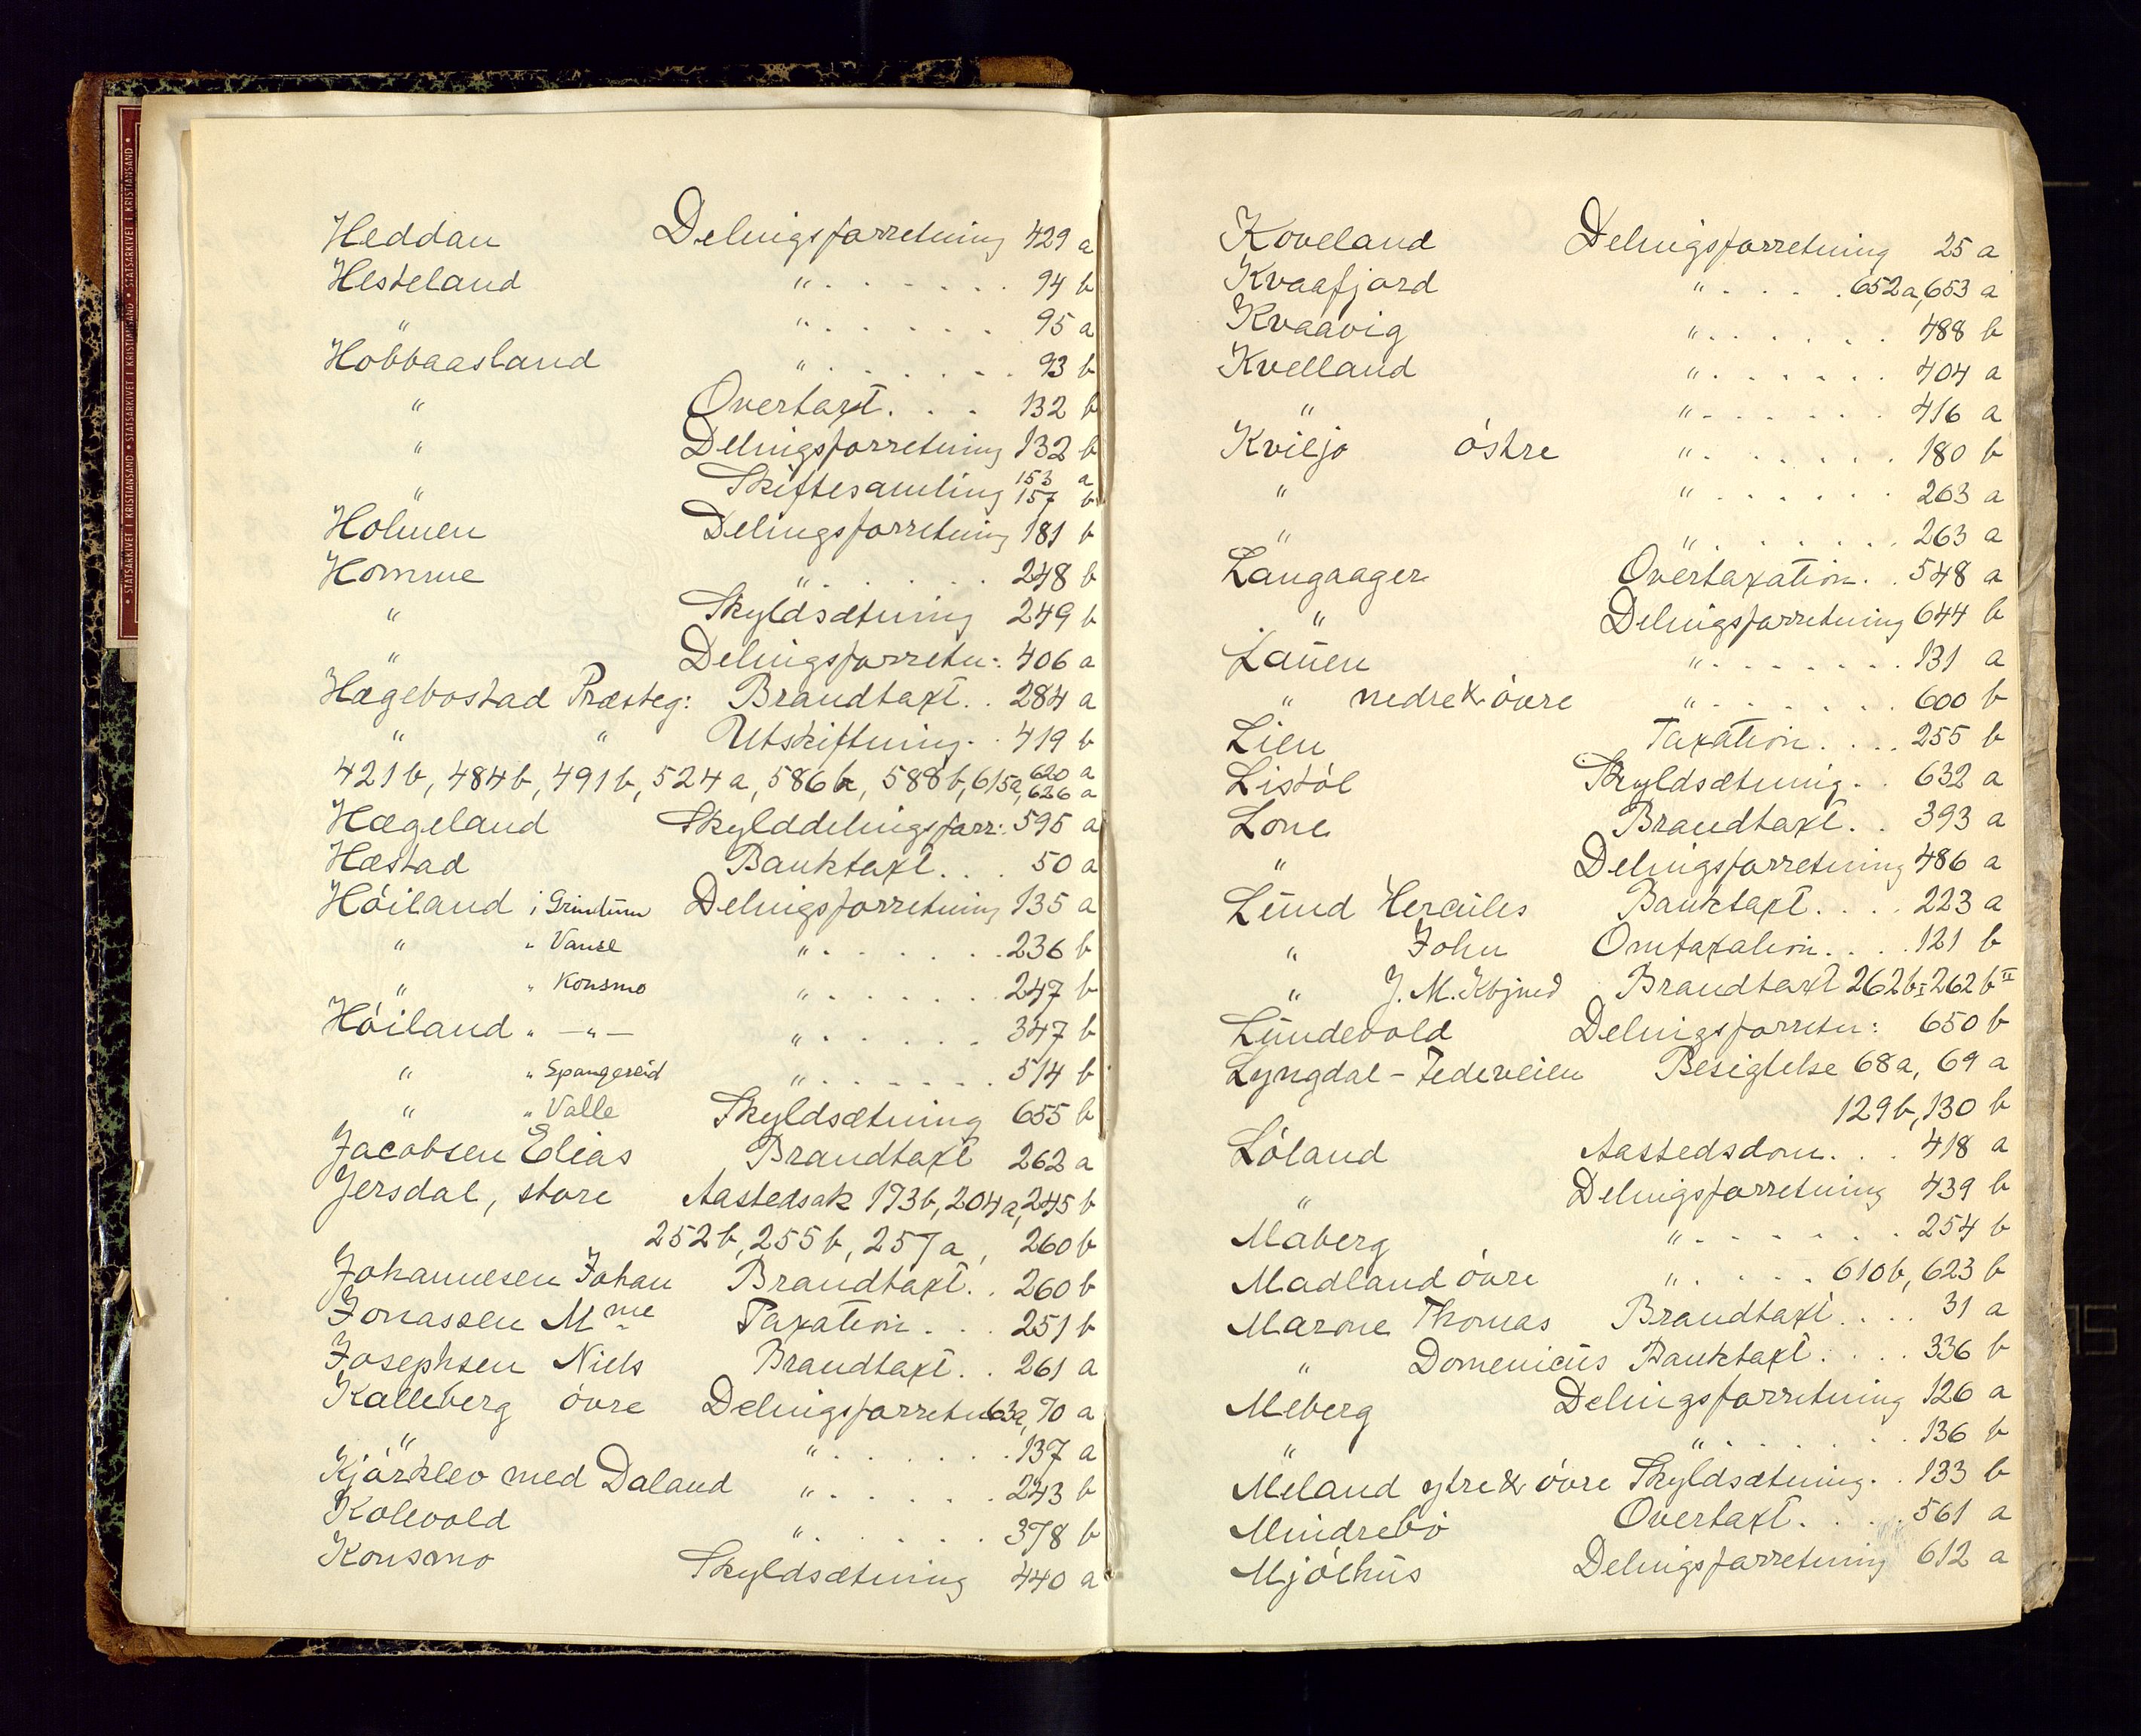 STATSARKIVET I KRISTIANSAND • STATSARKIVET I KRISTIANSAND • STATSARKIVET I KRISTIANSAND •
Heddan Delingsforretning 429 a
Hesteland " . . . . . . . 94 b
" " . . . . . . 95 a
Hobbaasland " . . . . . . . 93 b
" Overtaxt . . . 132 b
" Delingsforretning 132 b
" Skiftesamling 153 a 157 b
Holmen Delingsforretning 181 b
Homme " . . . . . . 248 b
" Skyldsætning 249 b
" Delingsforretn: 406 a
Hægebostad Præsteg: Brandtaxt . . 284 a
" " Utskiftning . . 419 b
421 b, 484 b, 491 b, 524 a, 586 b, 588 b, 615a, 620 a 626 a
Hægeland Skylddelingsforr: 595 a
Hæstad Banktaxt . . . 50 a
Höiland i Grindum Delingsforretning 135 a
" " Vanse " . . . . . . . 236 b
" " Konsmo " . . . . . . 247 b
Höiland " —"— " . . . . . . 347 b
" " Spangereid " . . . . . . . 514 b
" " Valle Skyldsætning 655 b
Jacobsen Elias Brandtaxt 262 a
Jersdal, store Aastedsak 193 b, 204 a, 245 b
252 b, 255 b, 257 a, 260 b
Johannesen Johan Brandtaxt . . 260 b
Jonassen Mme Taxation . . . 251 b
Josephsen Niels Brandtaxt . . 261 a
Kalleberg övre Delingsforretn 63a, 70 a
" " . . . . . . . 137 a
Kjörklev med Daland " . . . . . . 243 b
Kolevold " . . . . . . 378 b
Konsmo Skyldsætning 440 a
Koveland Delingsforretning 25 a
Kvaafjord " . . . . . 652a, 653 a
Kvaavig " . . . . . . 488 b
Kvelland " . . . . . . 404 a
" " . . . . . . 416 a
Kviljo östre " . . . . . . 180 b
" " . . . . . . 263 a
" " . . . . . . 263 a
Langaager Overtaxation . . 548 a
" Delingsforretning 644 b
Lauen " . . . . . . . 131 a
" nedre & övre " . . . . . . . 600 b
Lien Taxation . . . . 255 b
Listöl Skyldsætning . . 632 a
Lone Brandtaxt . . 393 a
" Delingsforretning 486 a
Lund Hercules Banktaxt . . . . 223 a
" John Omtaxation . . . . 121 b
" J. M. Kbjmd Brandtaxt 262 b I 262 b II
Lundevold Delingsforretn: 650 b
Lyngdal - Fedeveien Besigtelse 68 a, 69 a
129 b, 130 b
Löland Aastedsdom . . . 418 a
" Delingsforretning 439 b
Maberg " . . . . . . . 254 b
Madland övre " . . . . . 610 b, 623 b
Marone Thomas Brandtaxt . . . . 31 a
" Domenicus Banktaxt . . . . 336 b
Meberg Delingsforretning 126 a
" " . . . . . . 136 b
Meland ytre & övre Skyldsætning . . 133 b
Mindrebö Overtaxt . . . . 561 a
Mjölhus Delingsforretning 612 a